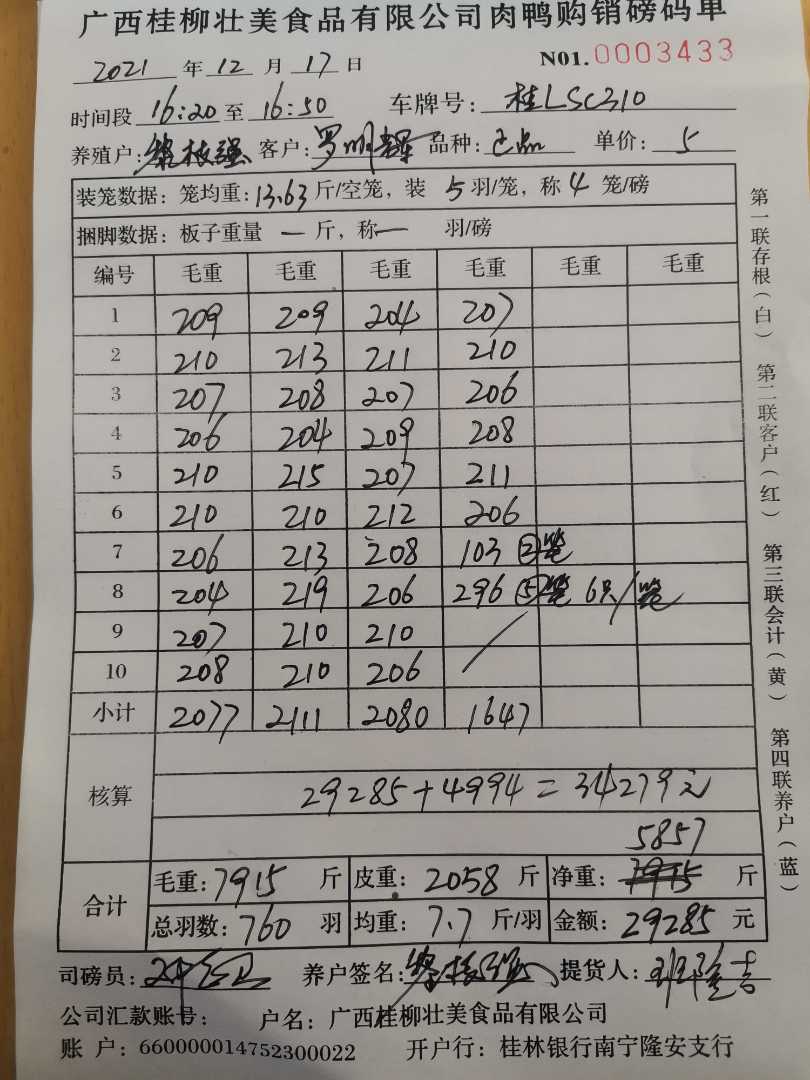 广西桂柳壮美食品有限公司肉鸭购销磅码单
2021 年 12 月 17 日 N01. 0003433
时间段 16:20 至 16:50 车牌号: 桂LSC310
养殖户: 黎枝强 客户: 罗明辉 品种: 单价: 5
装笼数据: 笼均重: 13.63 斤/空笼, 装 5 羽/笼, 称 4 笼/磅
捆脚数据: 板子重量 一 斤, 称 一 羽/磅
编号 毛重 毛重 毛重 毛重 毛重 毛重
1 209 209 204 207
2 210 213 211 210
3 207 208 207 206
4 206 204 209 208
5 210 215 207 211
6 210 210 212 206
7 206 213 208 103 ②笼
8 204 219 206 296 ⑤笼 6只/笼
9 207 210 210
10 208 210 206
小计 2077 2111 2080 1647
核算
29285+4994=34279元
5857
合计 毛重: 7915 斤 皮重: 2058 斤 净重: 7915 斤
总羽数: 760 羽 均重: 7.7 斤/羽 金额: 29285 元
司磅员: 养户签名: 黎枝强 提货人:
公司汇款账号: 户名: 广西桂柳壮美食品有限公司
账 户: 660000014752300022 开户行: 桂林银行南宁隆安支行
第一联存根(白) 第二联客户(红) 第三联会计(黄) 第四联养户(蓝)